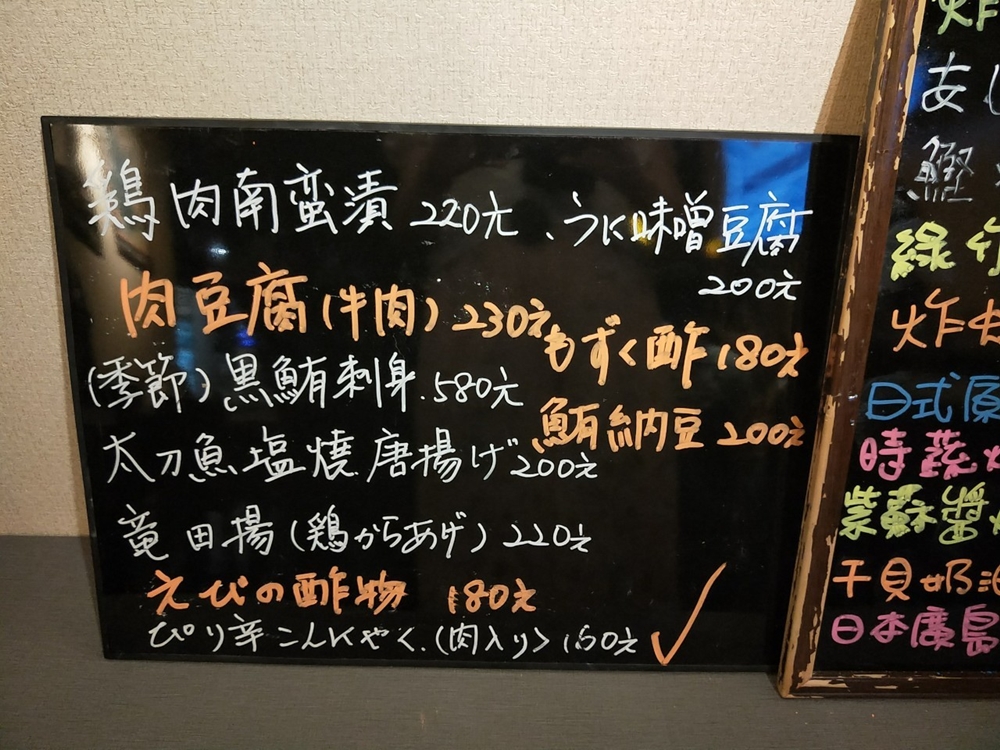 鶏肉南蛮漬 220元
、うに味噌豆腐
200元
肉豆腐(牛肉) 230元
もずく酢 180元
(季節)黒鮪刺身.580元
鮪納豆 200元
太刀魚塩焼.唐揚げ 200元
竜田揚(鶏からあげ) 220元
えびの酢物 180元
ぴり辛こんにゃく.(肉入り) 160元
炸
あじ
鰹
緑竹
炸
日式原
時蔬
紫蘇醬
干貝奶油
日本廣島